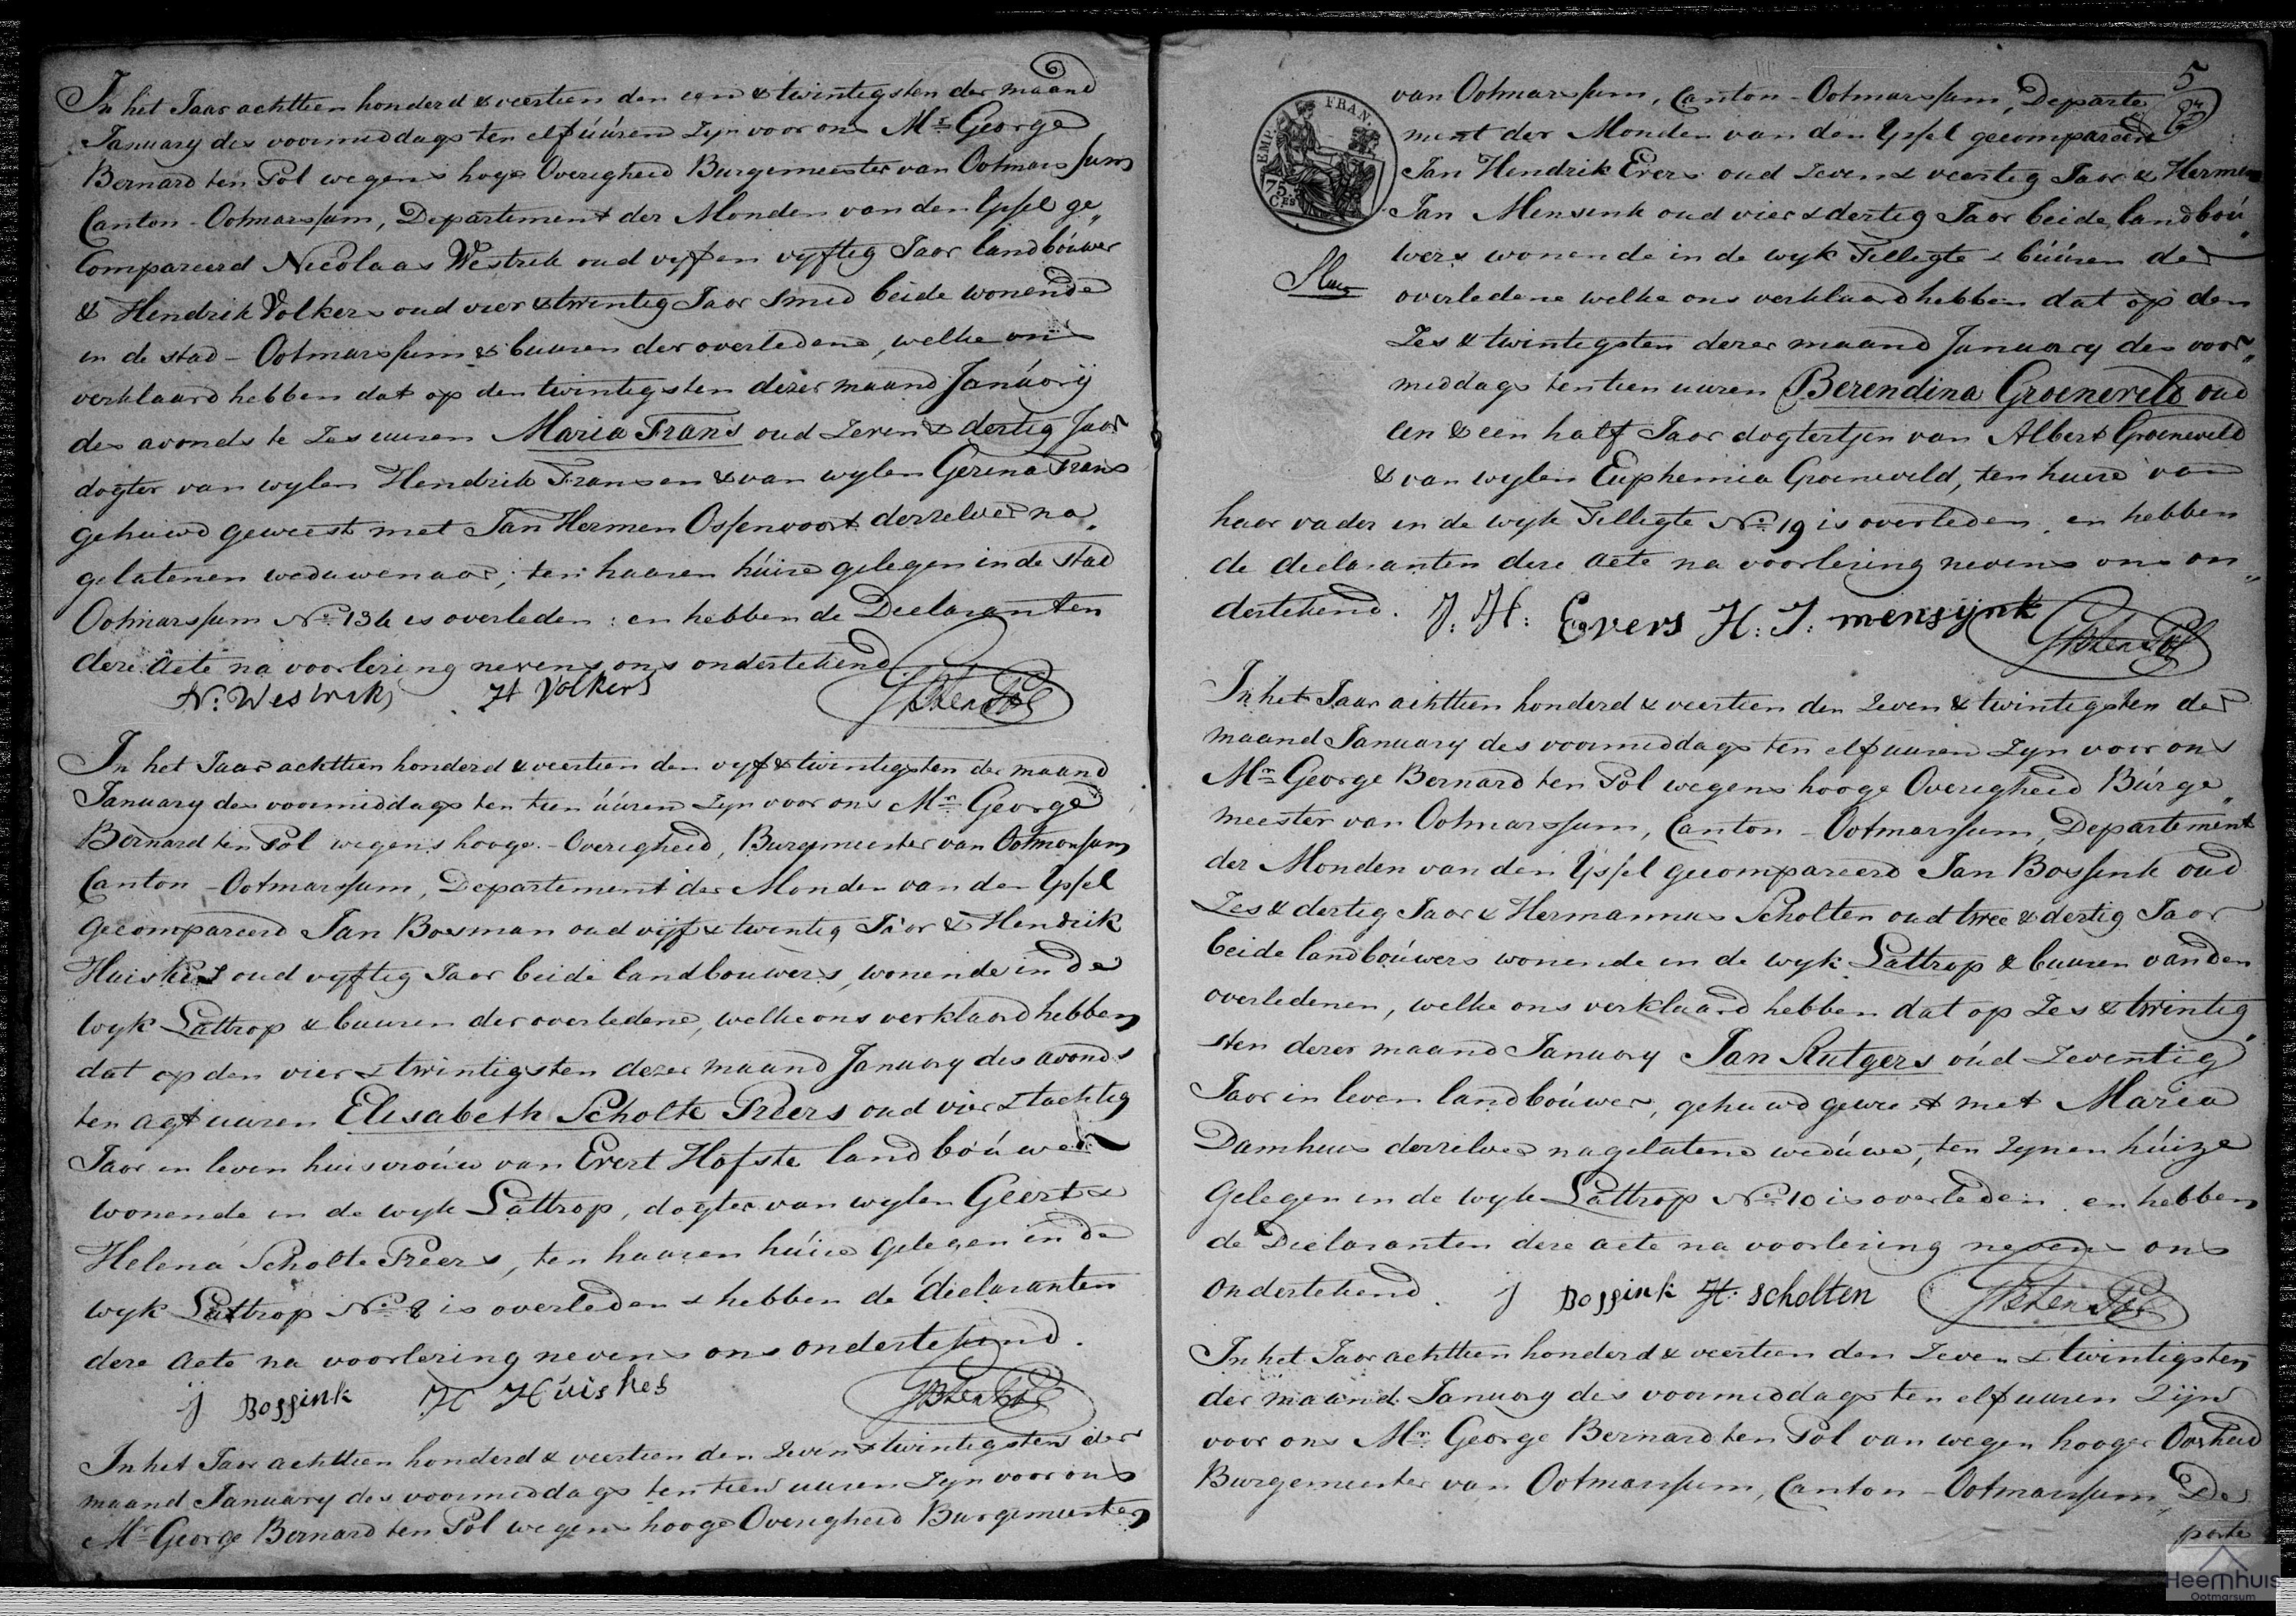 In het Jaar achttien honderd & veertien den een & twintigsten der maand
January des voormiddags ten elf úúren zyn voor ons Mr. George
Bernard ten Pol wegens hoge Overigheid Burgemeester van Ootmarssum
Canton - Ootmarssum, Departement der Monden van den Yssel ge„
Compareerd Nicolaas Westrik oud vyf en vyftig Jaar landboúwer
& Hendrik Volkers oud vier & twintig Jaar Smid beide wonende
in de stad - Ootmarssum & buuren der overledene, welke ons
verklaard hebben dat op den twintigsten dezer maand Janúarÿ
des avonds te zes uuren Maria Frans oud zeven & dertig Jaar
dogter van wylen Hendrik Fransen & van wylen Gerina Frans
gehuwd geweest met Jan Hermen Ossenvoort derzelver na„
gelatenen weduwenaar, ten haaren húise gelegen in de stad
Ootmarssum No. 136 is overleden : en hebben de Declaranten
deze acte na voorlezing nevens ons ondertekend
N: Westrik H Volkers GBtenPol
In het Jaar achttien honderd & veertien den vyf & twintigsten der maand
January des voormiddags ten tien úúren zyn voor ons Mr. George
Bernard ten Pol wegens hooge - Overigheid, Burgemeester van Ootmarssum
Canton - Ootmarssum, Departement der Monden van den Yssel
Gecompareerd Jan Bosman oud vijf & twintig Jaar & Hendrik
Huiskes oud vyftig Jaar beide landbouwers, wonende in de
wyk Lattrop & buuren der overledene, welke ons verklaard hebben
dat op den vier & twintigsten dezer maand January des avonds
ten agt uuren Elisabeth Scholte Freers oud vier & tachtig
Jaar in leven huisvroúw van Evert Hofste landboúwer
wonende in de wyk Lattrop, dogter van wylen Geert &
Helena Scholte Freers, ten haaren húise gelegen in de
wyk Lattrop No. 8 is overleden & hebben de declaranten
deze acte na voorlezing nevens ons ondertekend.
j Bossink H Húiskes GBtenPol
In het Jaar achttien honderd & veertien den zeven & twintigsten der
maand January des voormiddags ten tien uuren zyn voor ons
Mr. George Bernard ten Pol wegens hooge Overigheid Burgemeester
5
EMP. FRAN.
75 Ces
van Ootmarssum, Canton - Ootmarssum, Departe
ment der Monden van den Yssel gecompareerd
Jan Hendrik Evers oud zeven & veertig Jaar & Hermen
Jan Mensink oud vier & dertig Jaar beide landboú„
wers wonende in de wyk Tilligte & búúren der
overledene welke ons verklaard hebben dat op den
zes & twintigsten dezer maand January des voor„
middags ten tien uuren Berendina Groeneveld oud
een & een half Jaar dogtertjen van Albert Groeneveld
& van wylen Euphemia Groeneveld, ten huise van
haar vader in de wyk Tilligte No. 19 is overleden, en hebben
de declaranten deze acte na voorlezing nevens ons on„
dertekend. J: H: Evers H: J: mensijnk GBtenPol
In het Jaar achttien honderd & veertien den zeven & twintigsten der
maand January des voormiddags ten elf uuren zyn voor ons
Mr. George Bernard ten Pol wegens hooge Overigheid Búrge„
meester van Ootmarssum, Canton - Ootmarssum, Departement
der Monden van den Yssel gecompareerd Jan Bossink oud
zes & dertig Jaar & Hermannus Scholten oud twee & dertig Jaar
beide landboúwers wonende in de wyk Lattrop & buuren van den
overledenen, welke ons verklaard hebben dat op zes & twintig„
sten dezer maand January Jan Rutgers oúd zeventig
Jaar in leven landboúwer, gehuwd geweest met Maria
Damhuis derzelver nagelatene wedúwe, ten zynen húize
gelegen in de wyk Lattrop No. 10 is overleden, en hebben
de Declaranten deze acte na voorlezing nevens ons
ondertekend. j Bossink H. scholten GBtenPol
In het Jaar achttien honderd & veertien den zeven & twintigsten
der maand January des voormiddags ten elf uuren zijn
voor ons Mr. George Bernard ten Pol van wegen hooger Overheid
Burgemeester van Ootmarssum, Canton - Ootmarssum, De
parte
Heemhuis
Ootmarsum